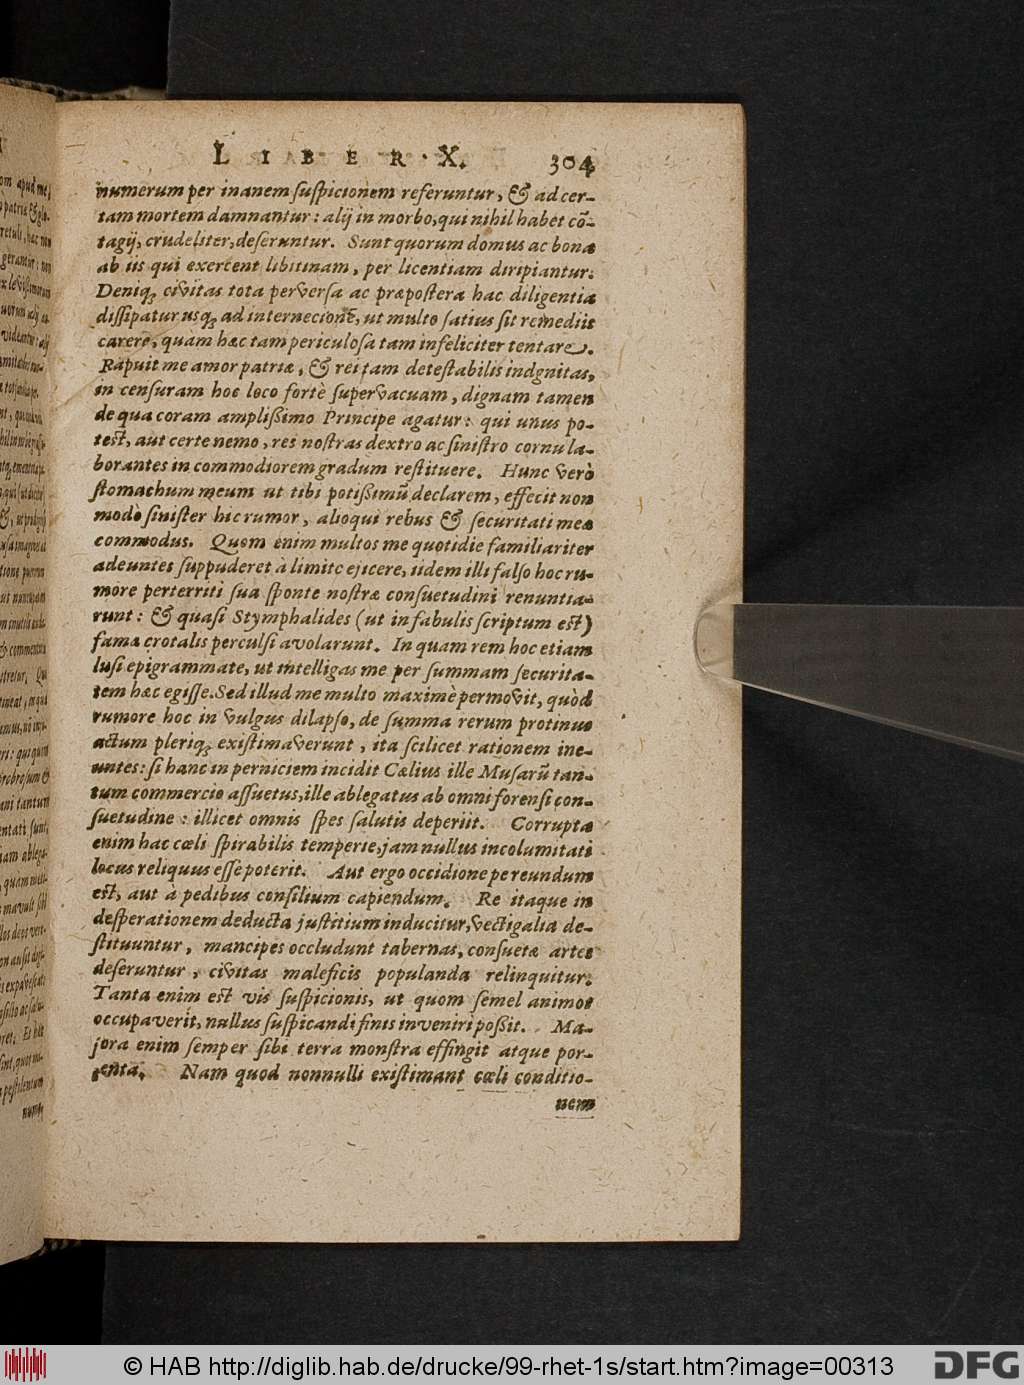 LIBER. X. 304
numerum per inanem suspicionem referuntur, & ad cer-
tam mortem damnantur: alij in morbo, qui nihil habet cō-
tagij, crudeliter, deseruntur. Sunt quorum domus ac bona
ab iis qui exercent libitinam, per licentiam diripiantur.
Deniq; civitas tota perversa ac præpostera hac diligentia
dissipatur usq; ad internecionē, ut multo satius sit remediis
carere, quam hæc tam periculosa tam infeliciter tentare.
Rapuit me amor patriæ, & rei tam detestabilis indgnitas,
in censuram hoc loco fortè supervacuam, dignam tamen
de qua coram amplißimo Principe agatur: qui unus po-
test, aut certe nemo, res nostras dextro ac sinistro cornu la-
borantes in commodiorem gradum restituere. Hunc verò
stomachum meum ut tibi potißimū declarem, effecit non
modò sinister hic rumor, alioqui rebus & securitati meæ
commodus. Quom enim multos me quotidie familiariter
adeuntes suppuderet à limite ejicere, iidem illi falso hoc ru-
more perterriti sua sponte nostræ consuetudini renuntia-
runt: & quasi Stymphalides (ut in fabulis scriptum est)
fama crotalis perculsi avolarunt. In quam rem hoc etiam
lusi epigrammate, ut intelligas me per summam securita-
tem hæc egisse. Sed illud me multo maximè permovit, quòd
rumore hoc in vulgus dilapso, de summa rerum protinus
actum pleriq; existimaverunt, ita scilicet rationem ine-
untes: si hanc in perniciem incidit Cælius ille Musarū tan-
tum commercio assuetus, ille ablegatus ab omni forensi con-
suetudine: illicet omnis spes salutis deperiit. Corrupta
enim hac cœli spirabilis temperie, jam nullus incolumitati
locus reliquus esse poterit. Aut ergo occidione pereundum
est, aut à pedibus consilium capiendum. Re itaque in
desperationem deducta justitium inducitur, vectigalia de-
stituuntur, mancipes occludunt tabernas, consuetæ artes
deseruntur, civitas maleficis populanda relinquitur.
Tanta enim est vis suspicionis, ut quom semel animos
occupaverit, nullus suspicandi finis inveniri poßit. Ma-
jora enim semper sibi terra monstra effingit atque por-
tenta. Nam quod nonnulli existimant cœli conditio-
nem
© HAB http://diglib.hab.de/drucke/99-rhet-1s/start.htm?image=00313
DFG